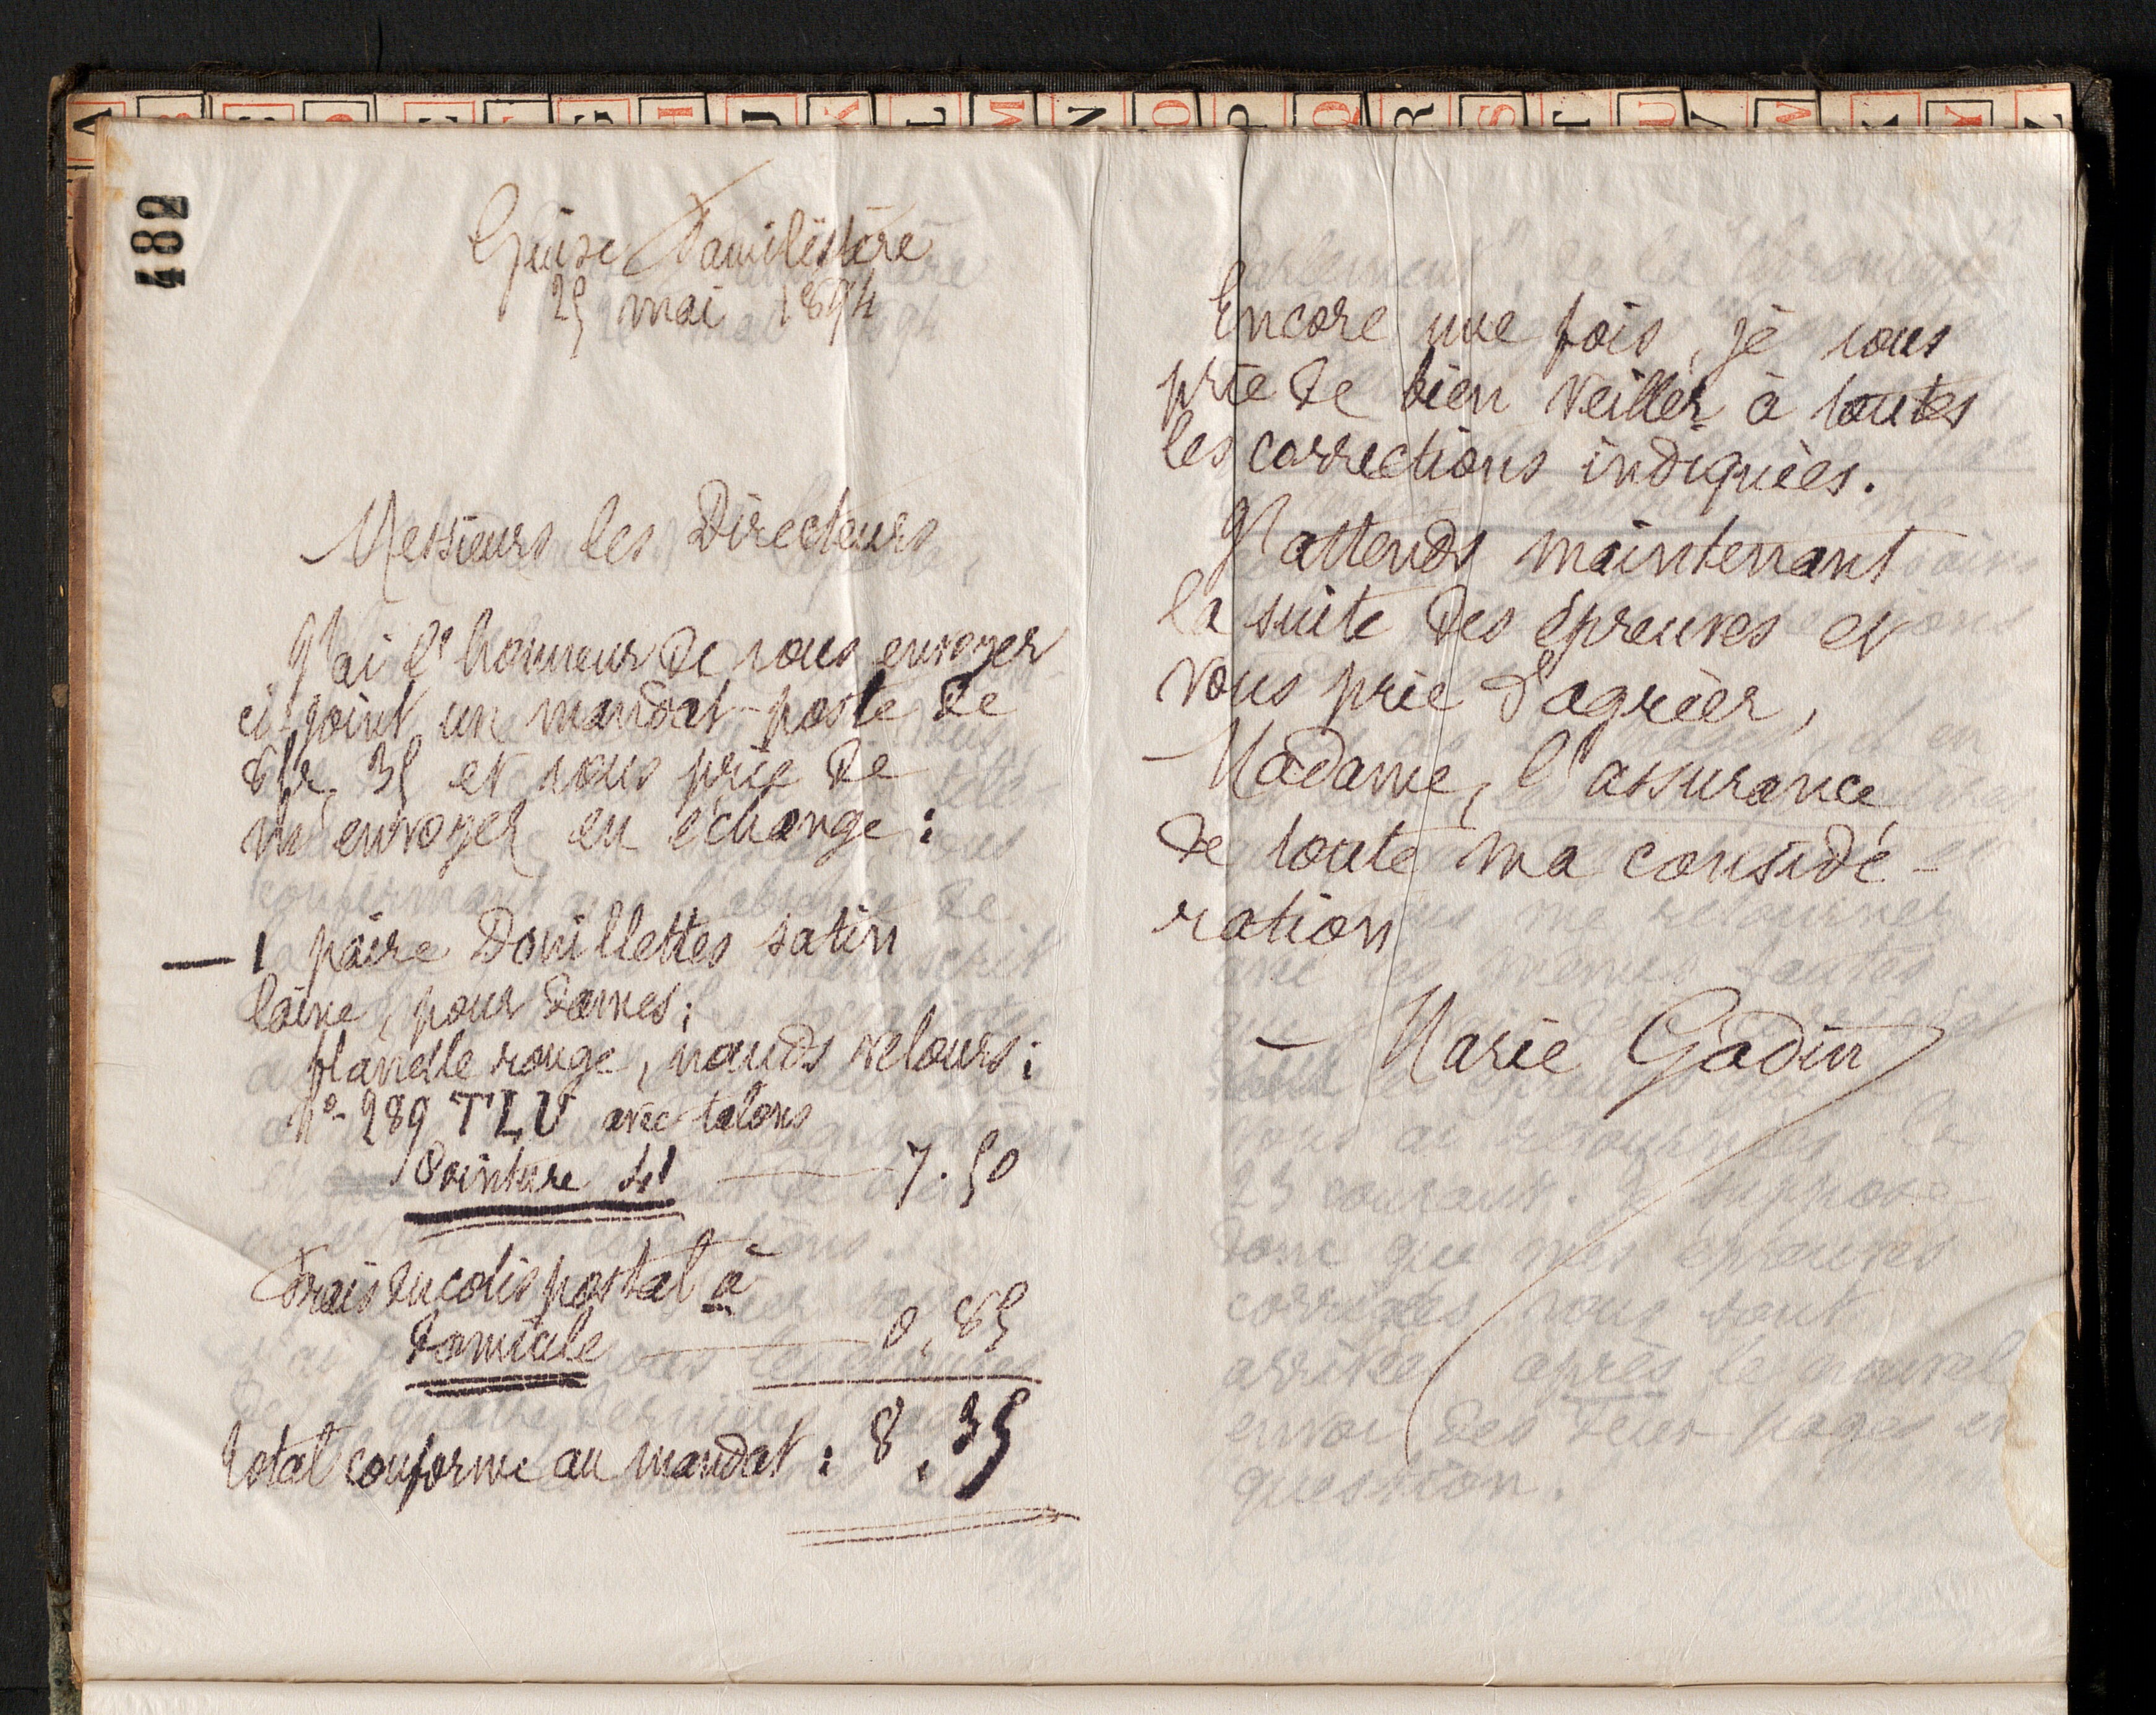 482
Guise Familistère
25 mai 1894
Messieurs les Directeurs
J'ai l'honneur de vous envoyer
ci-joint un mandat-poste de
8fr. 35 et vous prie de
m'envoyer en échange :
— 1 paire Douillettes satin
laine, pour dames;
flanelle rouge, nœuds velours;
No- 289 TLV avec talons
Pointure 41 — 7.50
Frais du colis postal à
domicile — 0,85
Total conforme au mandat : 8.35
Encore une fois, je vous
prie de bien veiller à toutes
les corrections indiquées.
J'attends maintenant
la suite des épreuves et
vous prie d'agréer,
Madame, l'assurance
de toute ma considé-
ration
Marie Godin